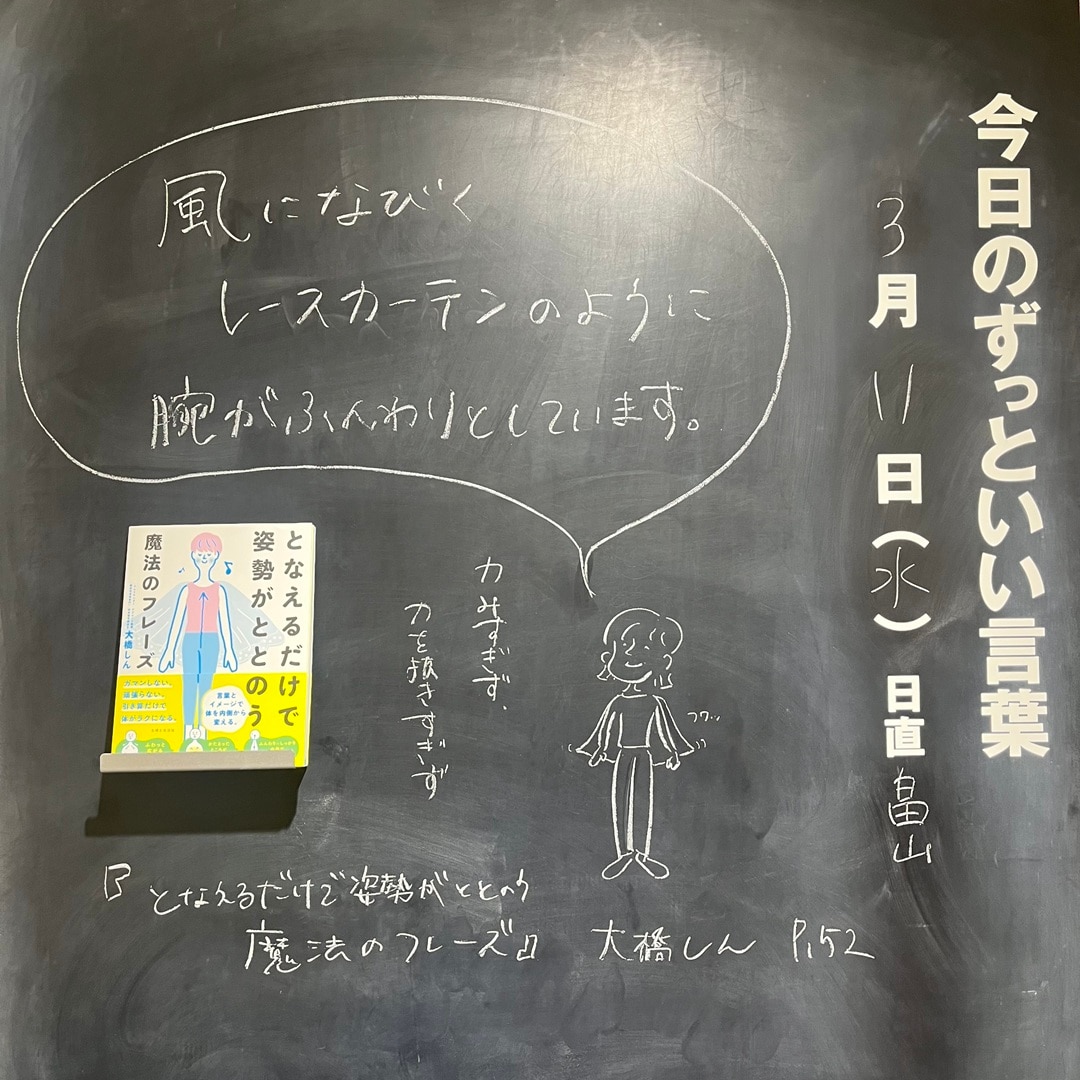 今日のずっといい言葉
3月11日(水) 日直 畠山
風になびく
レースカーテンのように
腕がふんわりとしています。
力みすぎず、
力を抜きすぎず
フワッ
となえるだけで
姿勢がととのう
魔法のフレーズ
大橋しん
ガマンしない、
頑張らない。
引き算だけで
体がラクになる。
言葉と
イメージで
体を内側から
変える。
『となえるだけで姿勢がととのう
魔法のフレーズ』 大橋しん P.52